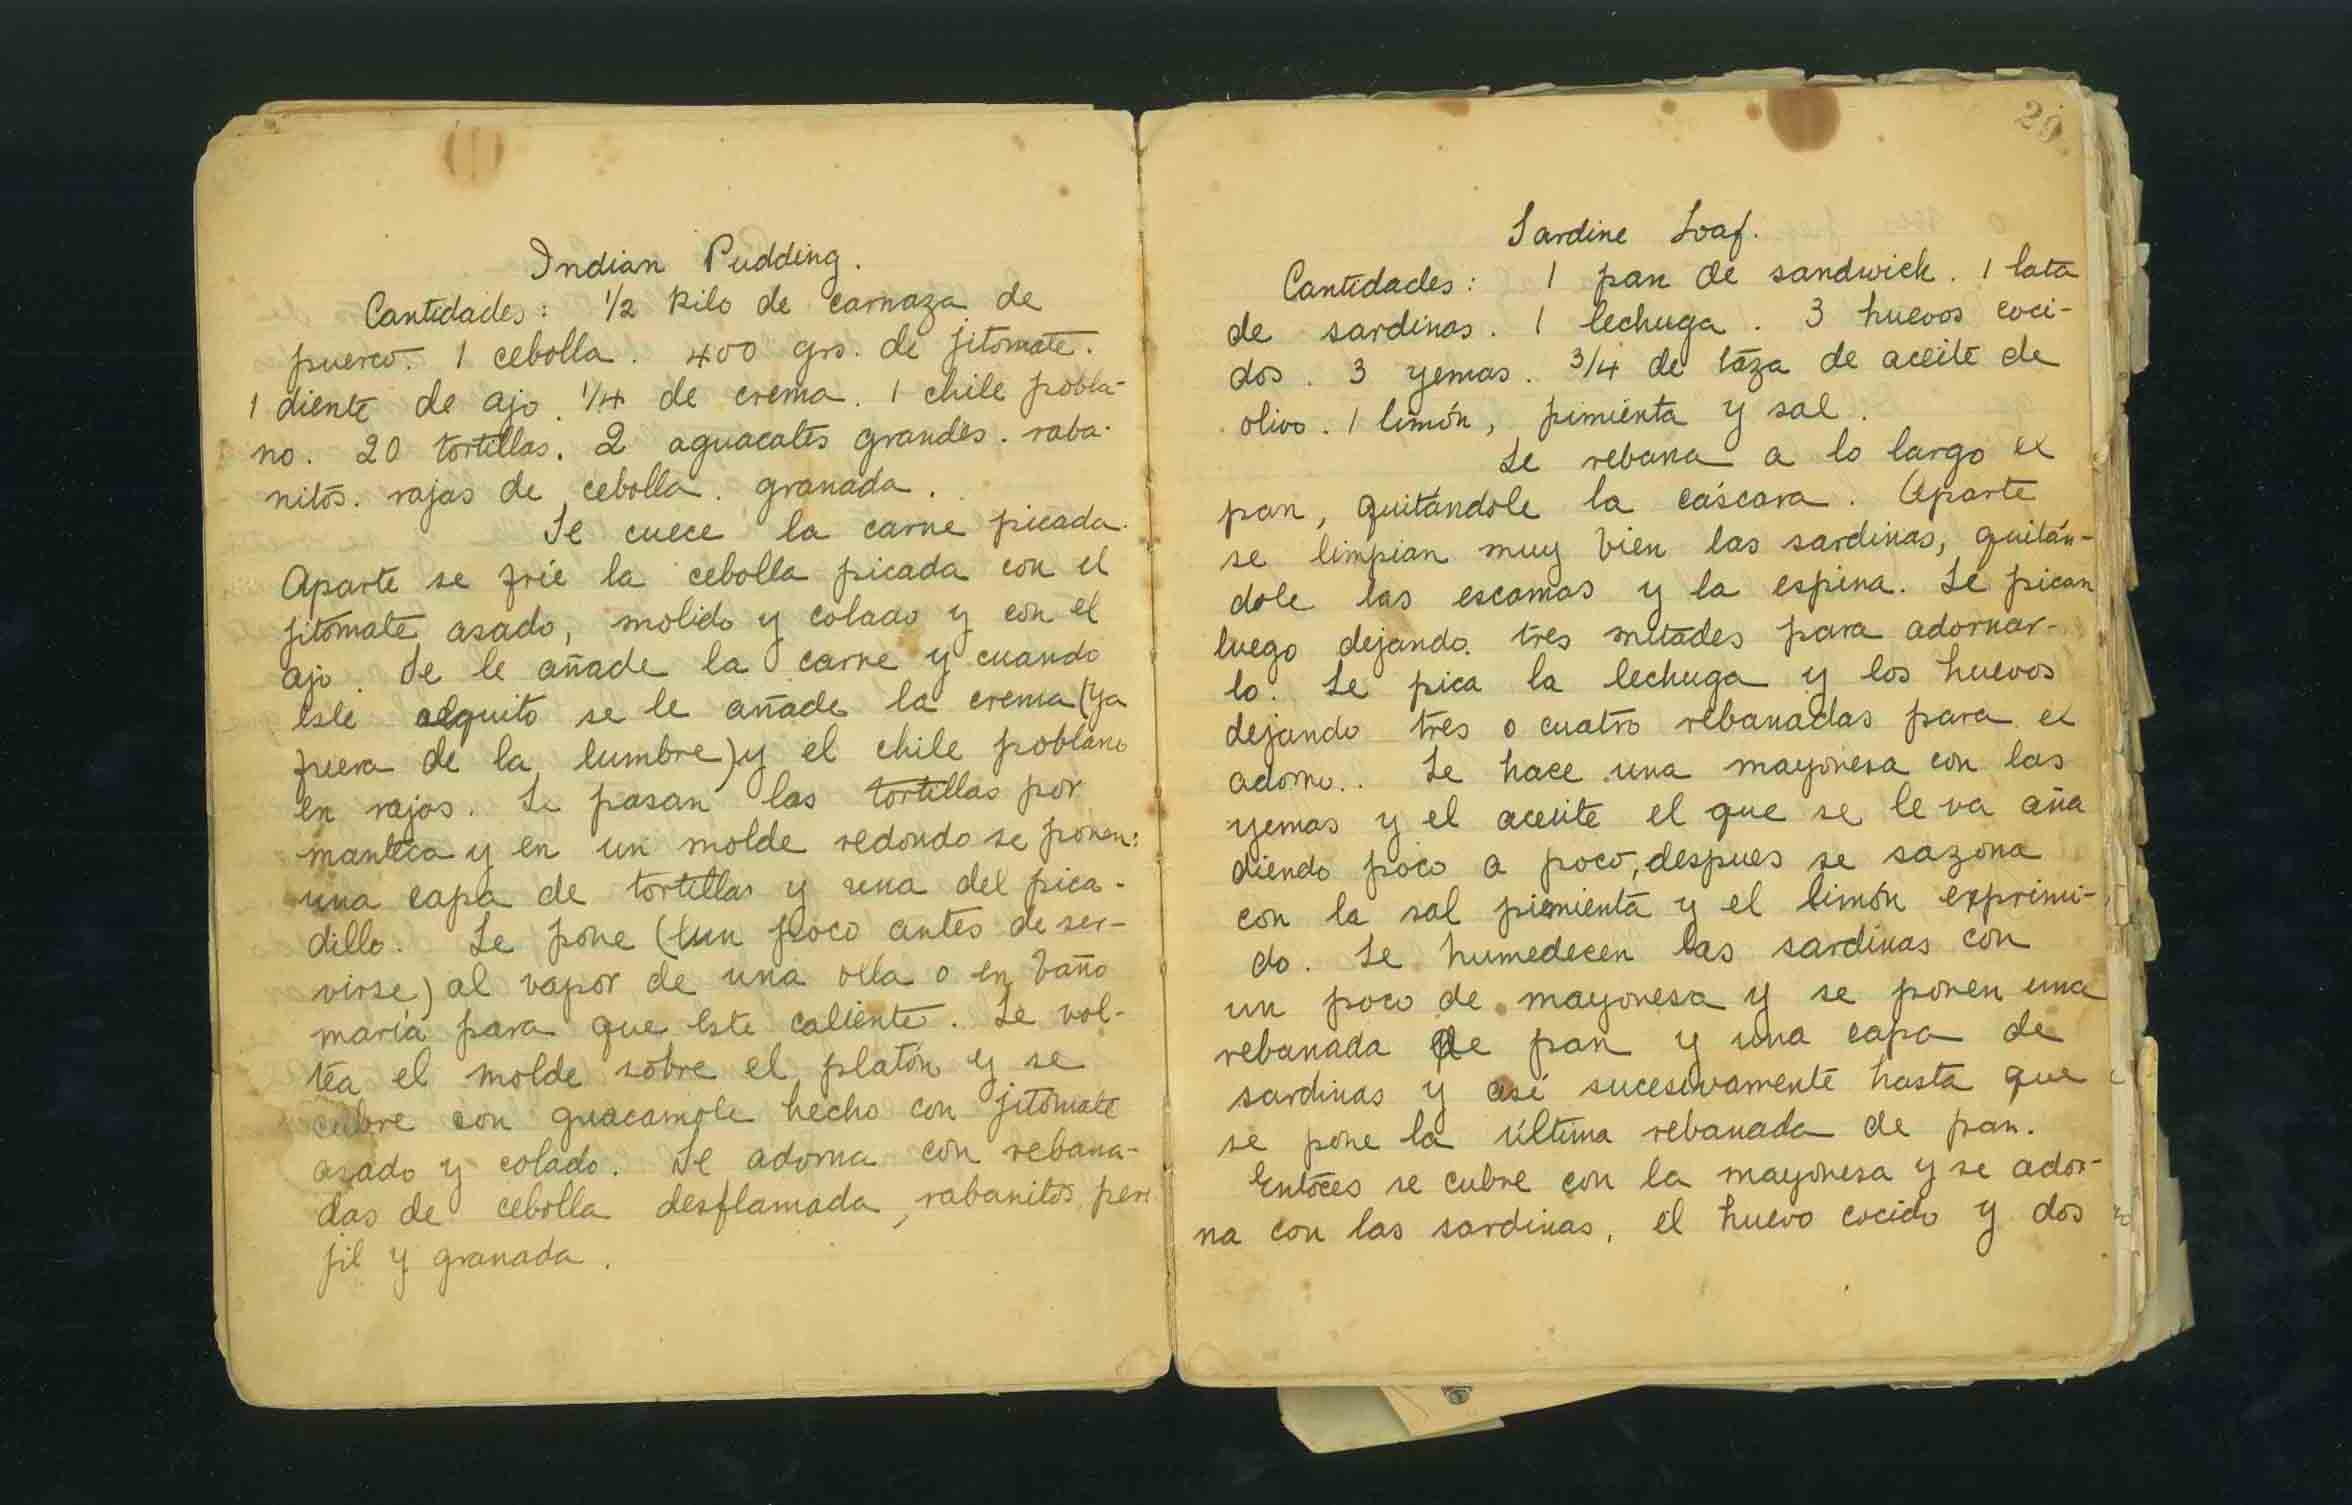 Indian Pudding.
Cantidades: 1/2 kilo de carnaza de
puerco. 1 cebolla. 400 grs. de jitomate.
1 diente de ajo. 1/4 de crema. 1 chile pobla-
no. 20 tortillas. 2 aguacates grandes. raba-
nitos. rajas de cebolla. granada.
Se cuece la carne picada.
Aparte se frie la cebolla picada con el
jitomate asado, molido y colado y con el
ajo. Se le añade la carne y cuando
este se le añade la crema (ya
fuera de la lumbre) y el chile poblano
en rajas. Se pasan las tortillas por
manteca y en un molde redondo se ponen:
una capa de tortillas y una del pica-
dillo. Se pone (un poco antes de ser-
virse) al vapor de una olla o en baño
maría para que este caliente. Se vol-
tea el molde sobre el platón y se
cubre con guacamole hecho con jitomate
asado y colado. Se adorna con rebana-
das de cebolla desflamada, rabanitos, pere
jil y granada.
29
Sardine Loaf.
Cantidades: 1 pan de sandwich. 1 lata
de sardinas. 1 lechuga. 3 huevos coci-
dos. 3 yemas. 3/4 de taza de aceite de
olivo. 1 limón, pimienta y sal.
Se rebana a lo largo el
pan, quitándole la cáscara. Aparte
se limpian muy bien las sardinas, quitán-
dole las escamas y la espina. Se pican
luego dejando tres mitades para adornar-
lo. Se pica la lechuga y los huevos
dejando tres o cuatro rebanadas para el
adorno.. Se hace una mayonesa con las
yemas y el aceite el que se le va aña
diendo poco a poco, despues se sazona
con la sal pimienta y el limón exprimi-
do. Se humedecen las sardinas con
un poco de mayonesa y se ponen una
rebanada de pan y una capa de
sardinas y asi sucesivamente hasta que
se pone la última rebanada de pan.
Entoces se cubre con la mayonesa y se ador-
na con las sardinas, el huevo cocido y dos